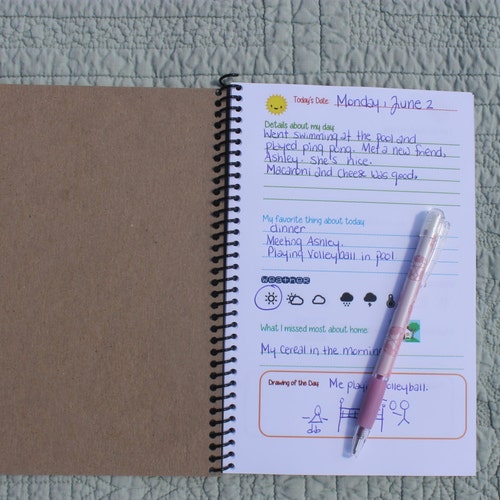 Today's Date Monday, June 2
Details about my day
Went swimming at the pool and
played ping pong. Met a new friend,
Ashley. She's nice.
Macaroni and cheese was good.
My favorite thing about today
dinner
Meeting Ashley.
Playing Volleyball in pool
weather
What I missed most about home:
My cereal in the morning
Drawing of the Day Me volleyball.